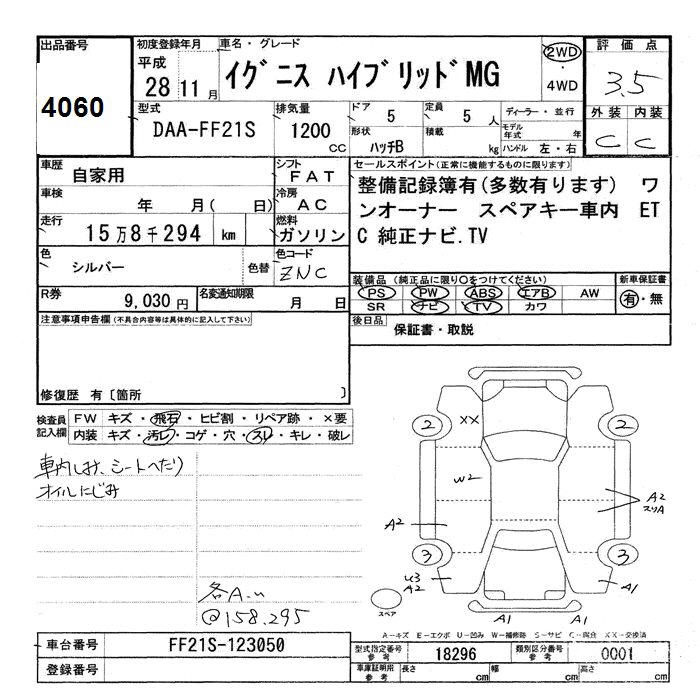 出品番号
4060
初度登録年月
平成
28 11 月
車名・グレード
イグニス ハイブリッドMG
2WD
・
4WD
評価点
3.5
外装 内装
C C
型式
DAA-FF21S
排気量
1200
CC
ドア 5
形状 ハッチB
定員 5 人
積載 kg
ディーラー・並行
モデル年式 年
ハンドル 左・右
車歴 自家用
シフト FAT
車検 年 月( 日)
冷房 AC
走行 15万8千294 km
燃料 ガソリン
色 シルバー 色替
色コード ZNC
R券 9,030 円
名変通知期限 月 日
セールスポイント(正常に機能するものに限ります)
整備記録簿有(多数有ります) ワ
ンオーナー スペアキー車内 ET
C 純正ナビ.TV
装備品(純正品に限り○をつけてください)
PS PW ABS エアB AW
SR ナビ TV カワ
新車保証書
有・無
後日品 保証書・取説
注意事項申告欄(不具合内容等は具体的に記入して下さい)
修復歴 有〔箇所 〕
検査員
記入欄
FW キズ・飛石・ヒビ割・リペア跡・×要
内装 キズ・汚レ・コゲ・穴・スレ・キレ・破レ
車内しみ、シートへたり
オイルにじみ
各A.u
@158.295
2
XX
2
W2
A2
スリA
A2
3
3
U3
A2
A1
スペア
A1
A1
A-キズ E-エクボ U-凹み W-補修跡 S-サビ C-腐食 XX-交換済
車台番号 FF21S-123050
登録番号
型式指定番号
参考
18296
類別区分番号
参考
0001
車庫証明用
参考
長さ cm 幅 cm 高さ cm